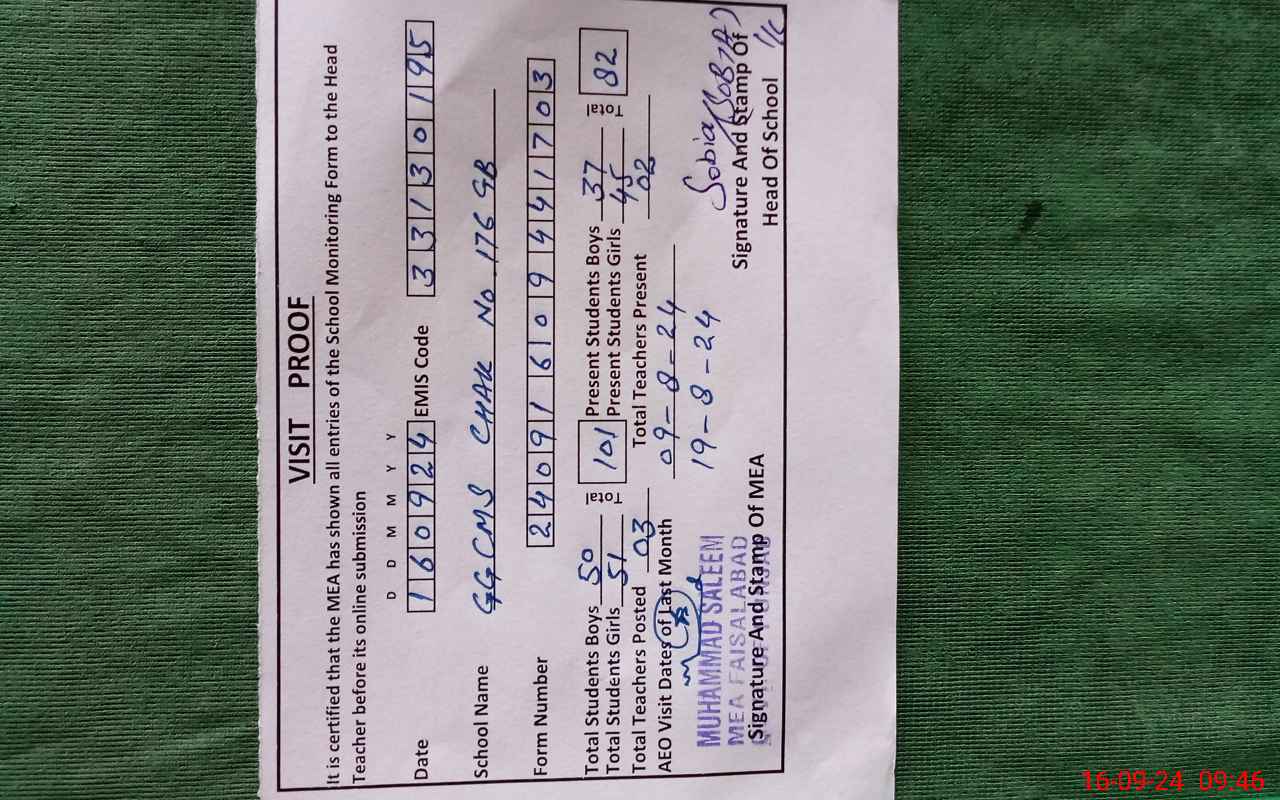 VISIT PROOF
It is certified that the MEA has shown all entries of the School Monitoring Form to the Head
Teacher before its online submission
D D M M Y Y
Date 160924 EMIS Code 33130195
School Name GGCMS CHAK No. 176 GB
Form Number 24091609441703
Total Students Boys 50 Total 101 Present Students Boys 37 Total 82
Total Students Girls 51 Present Students Girls 45
Total Teachers Posted 03 Total Teachers Present 02
AEO Visit Dates of Last Month 09-8-24
19-8-24
MUHAMMAD SALEEM
MEA FAISALABAD
Sobia
Signature And Stamp Of MEA
Signature And Stamp Of
Head Of School
16-09-24 09:46